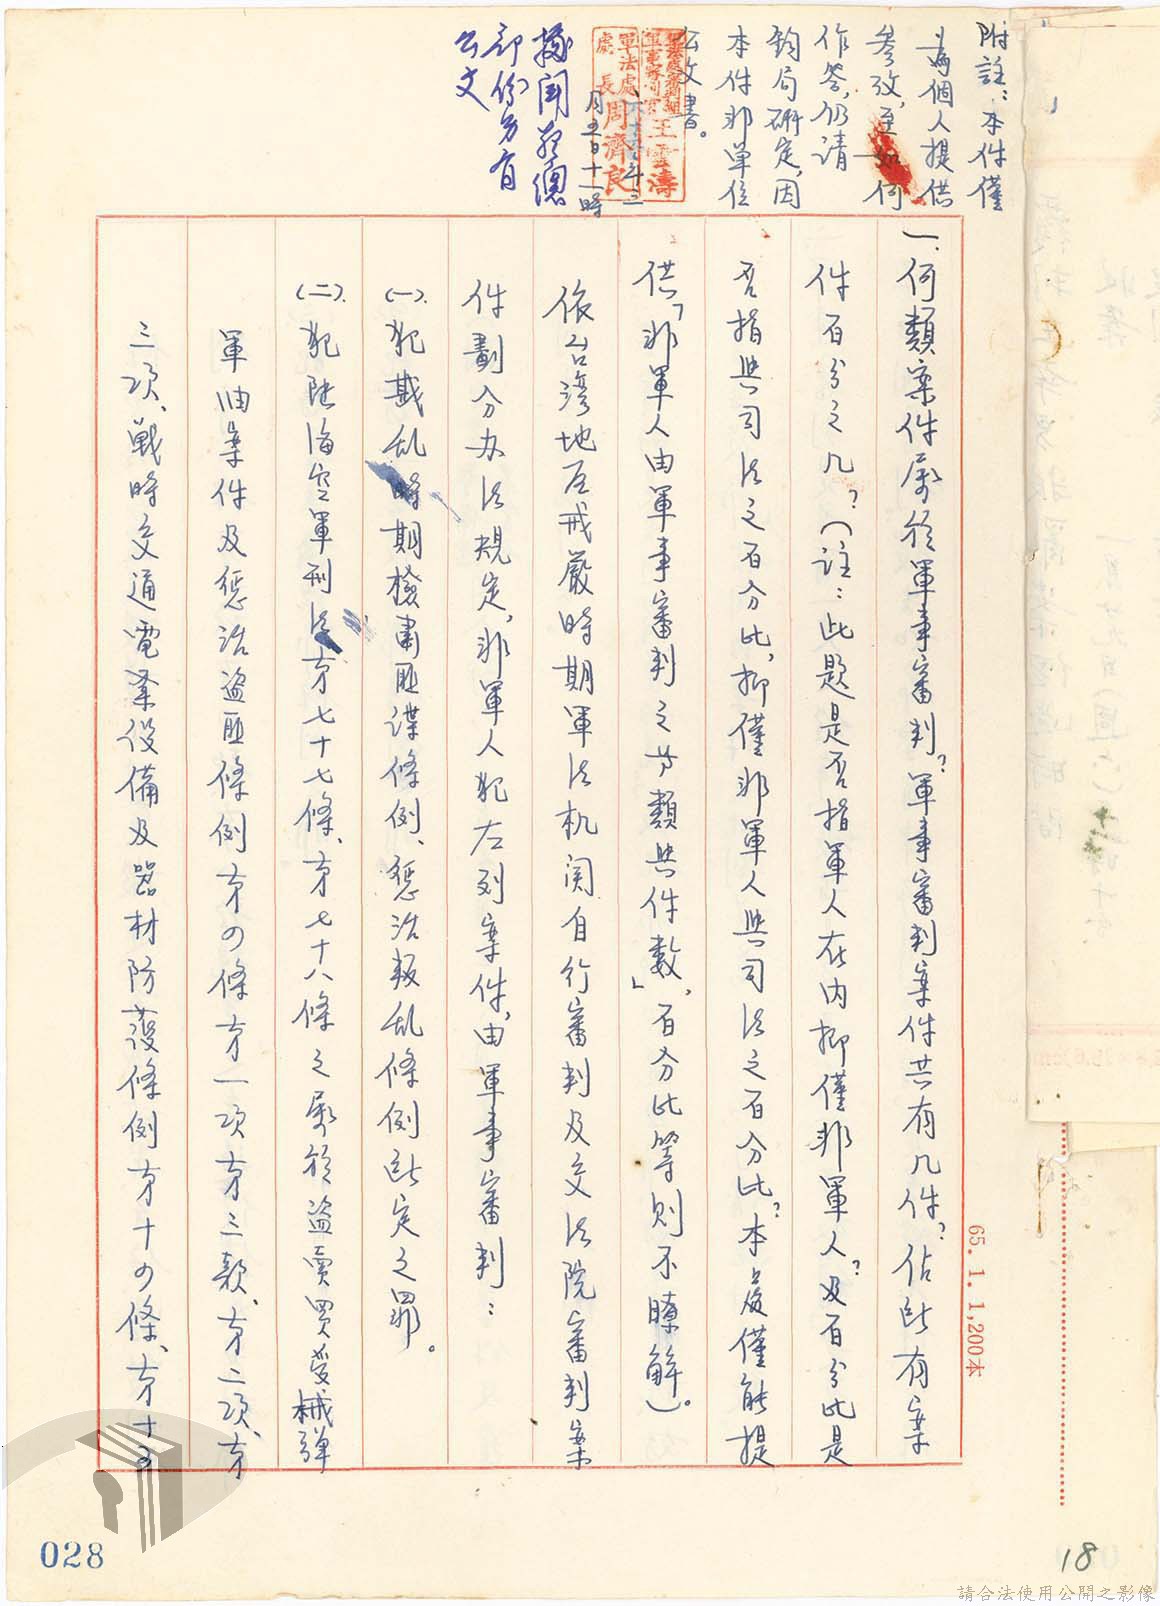 附註：本件僅
為個人提供
參攷，至如何
作答，仍請
鈞局研定，因
本件非單位
公文書。
軍法處
處長周齊良
王雲濤
月五日十一時
部份另有
公文
一、何類案件屬於軍事審判？軍事審判案件共有几件？佔所有案
件百分之几？（註：此題是否指軍人在內抑僅非軍人？及百分比是
否指與司法之百分比，抑僅非軍人與司法之百分比？本處僅能提
供「非軍人由軍事審判之分類與件數」，百分比等則不瞭解）。
依台湾地区戒嚴時期軍法机関自行審判及交法院審判案
件劃分办法規定，非軍人犯左列案件，由軍事審判：
(一).犯戡乱時期檢肅匪諜條例、懲治叛乱條例所定之罪。
(二).犯陸海空軍刑法才七十七條、才七十八條之屬於盜賣買受械彈
軍油案件及懲治盜匪條例才の條才一項才三款、才二項、才
三項、戰時交通電業設備及器材防護條例才十の條、才十五
65. 1. 1,200本
028
18
請合法使用公開之影像